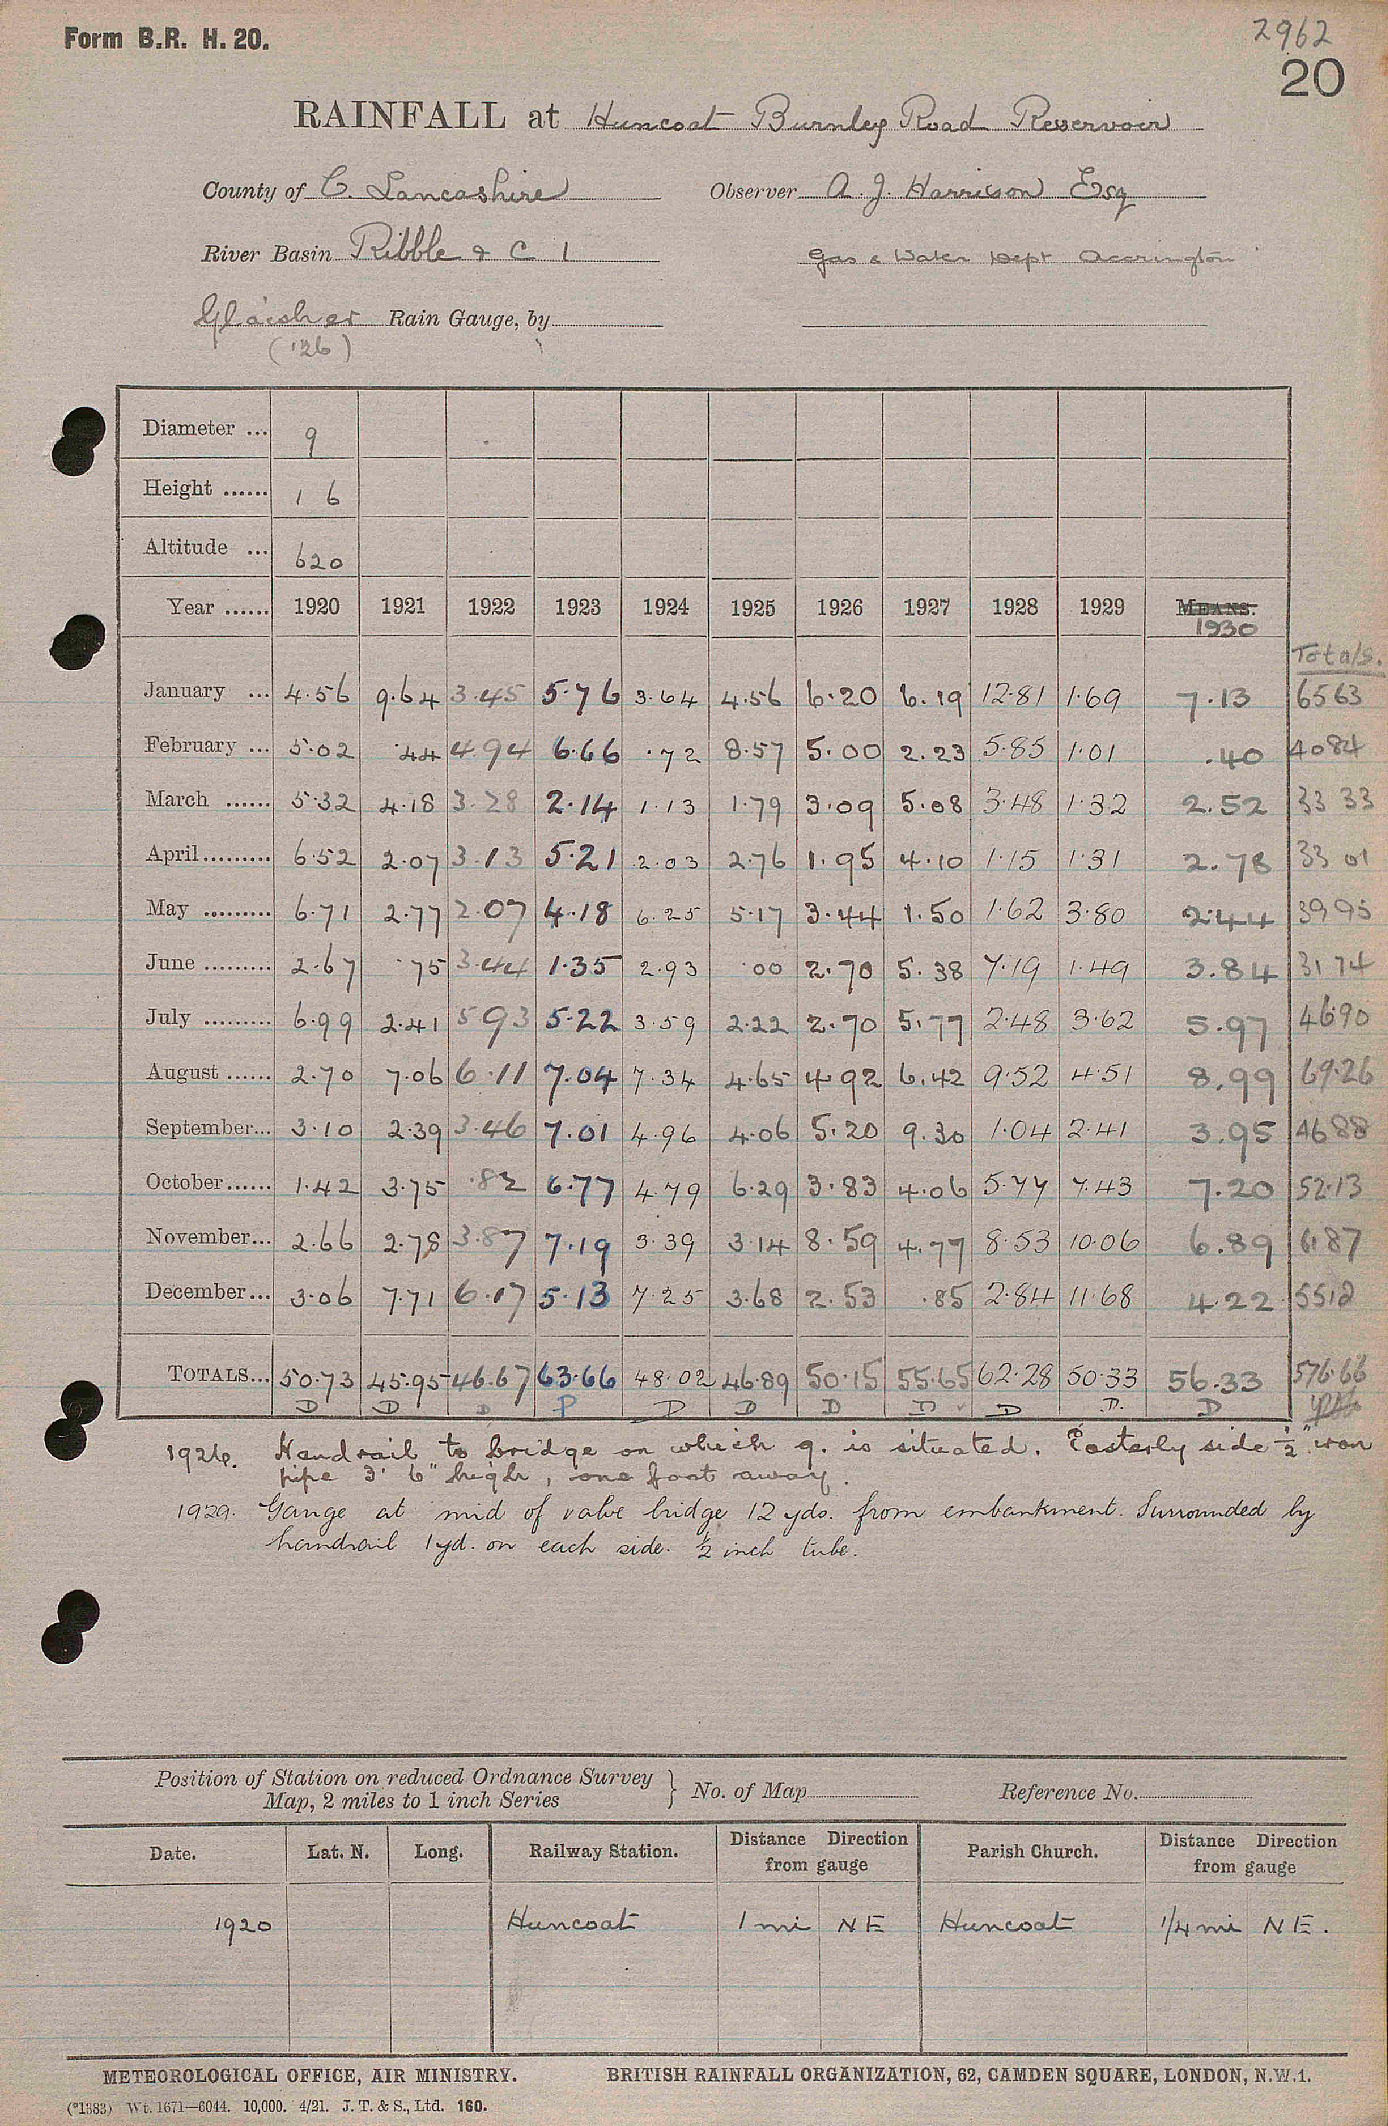 Form B.R. H. 20.
2962
20
RAINFALL at Huncoat Burnley Road Reservoir
County of C. Lancashire Observer A. J. Harrison Esq
River Basin Ribble & C 1 Gas & Water Dept Accrington
Glaisher Rain Gauge, by
('26)
Diameter ... 9
Height ...... 1 6
Altitude ... 620
Year ...... 1920 1921 1922 1923 1924 1925 1926 1927 1928 1929 MEANS.
1930
Totals.
January ... 4.56 9.64 3.45 5.76 3.64 4.56 6.20 6.19 12.81 1.69 7.13 6563
February ... 5.02 .44 4.94 6.66 .72 8.57 5.00 2.23 5.85 1.01 .40 4084
March ...... 5.32 4.18 3.28 2.14 1.13 1.79 3.09 5.08 3.48 1.32 2.52 33 33
April ......... 6.52 2.07 3.13 5.21 2.03 2.76 1.95 4.10 1.15 1.31 2.78 33 01
May ......... 6.71 2.77 2.07 4.18 6.25 5.17 3.44 1.50 1.62 3.80 2.44 3995
June ......... 2.67 .75 3.44 1.35 2.93 .00 2.70 5.38 7.19 1.49 3.84 3174
July ......... 6.99 2.41 5 93 5.22 3.59 2.22 2.70 5.77 2.48 3.62 5.97 4690
August ...... 2.70 7.06 6.11 7.04 7.34 4.65 4.92 6.42 9.52 4.51 8.99 69.26
September... 3.10 2.39 3.46 7.01 4.96 4.06 5.20 9.30 1.04 2.41 3.95 4688
October...... 1.42 3.75 .82 6.77 4.79 6.29 3.83 4.06 5.77 7.43 7.20 52.13
November... 2.66 2.78 3.87 7.19 3.39 3.14 8.59 4.77 8.53 10.06 6.89 6187
December... 3.06 7.71 6.17 5.13 7.25 3.68 2.53 .85 2.84 11.68 4.22 5512
TOTALS... 50.73 45.95 46.67 63.66 48.02 46.89 50.15 55.65 62.28 50.33 56.33 576.66
D D D P D D D D D D. D
1926. Handrail to bridge on which g. is situated. Easterly side ½" iron
pipe 3' 6" high, one foot away.
1929. Gauge at mid of valve bridge 12 yds. from embankment. Surrounded by
handrail 1yd. on each side. ½ inch tube.
Position of Station on reduced Ordnance Survey
Map, 2 miles to 1 inch Series } No. of Map Reference No.
Date. Lat. N. Long. Railway Station. Distance Direction from gauge Parish Church. Distance Direction from gauge
1920 Huncoat 1 mi NE Huncoat 1/4 mi NE.
METEOROLOGICAL OFFICE, AIR MINISTRY. BRITISH RAINFALL ORGANIZATION, 62, CAMDEN SQUARE, LONDON, N.W.1.
(*1383) Wt. 1671—6044. 10,000. 4/21. J. T. & S., Ltd. 160.